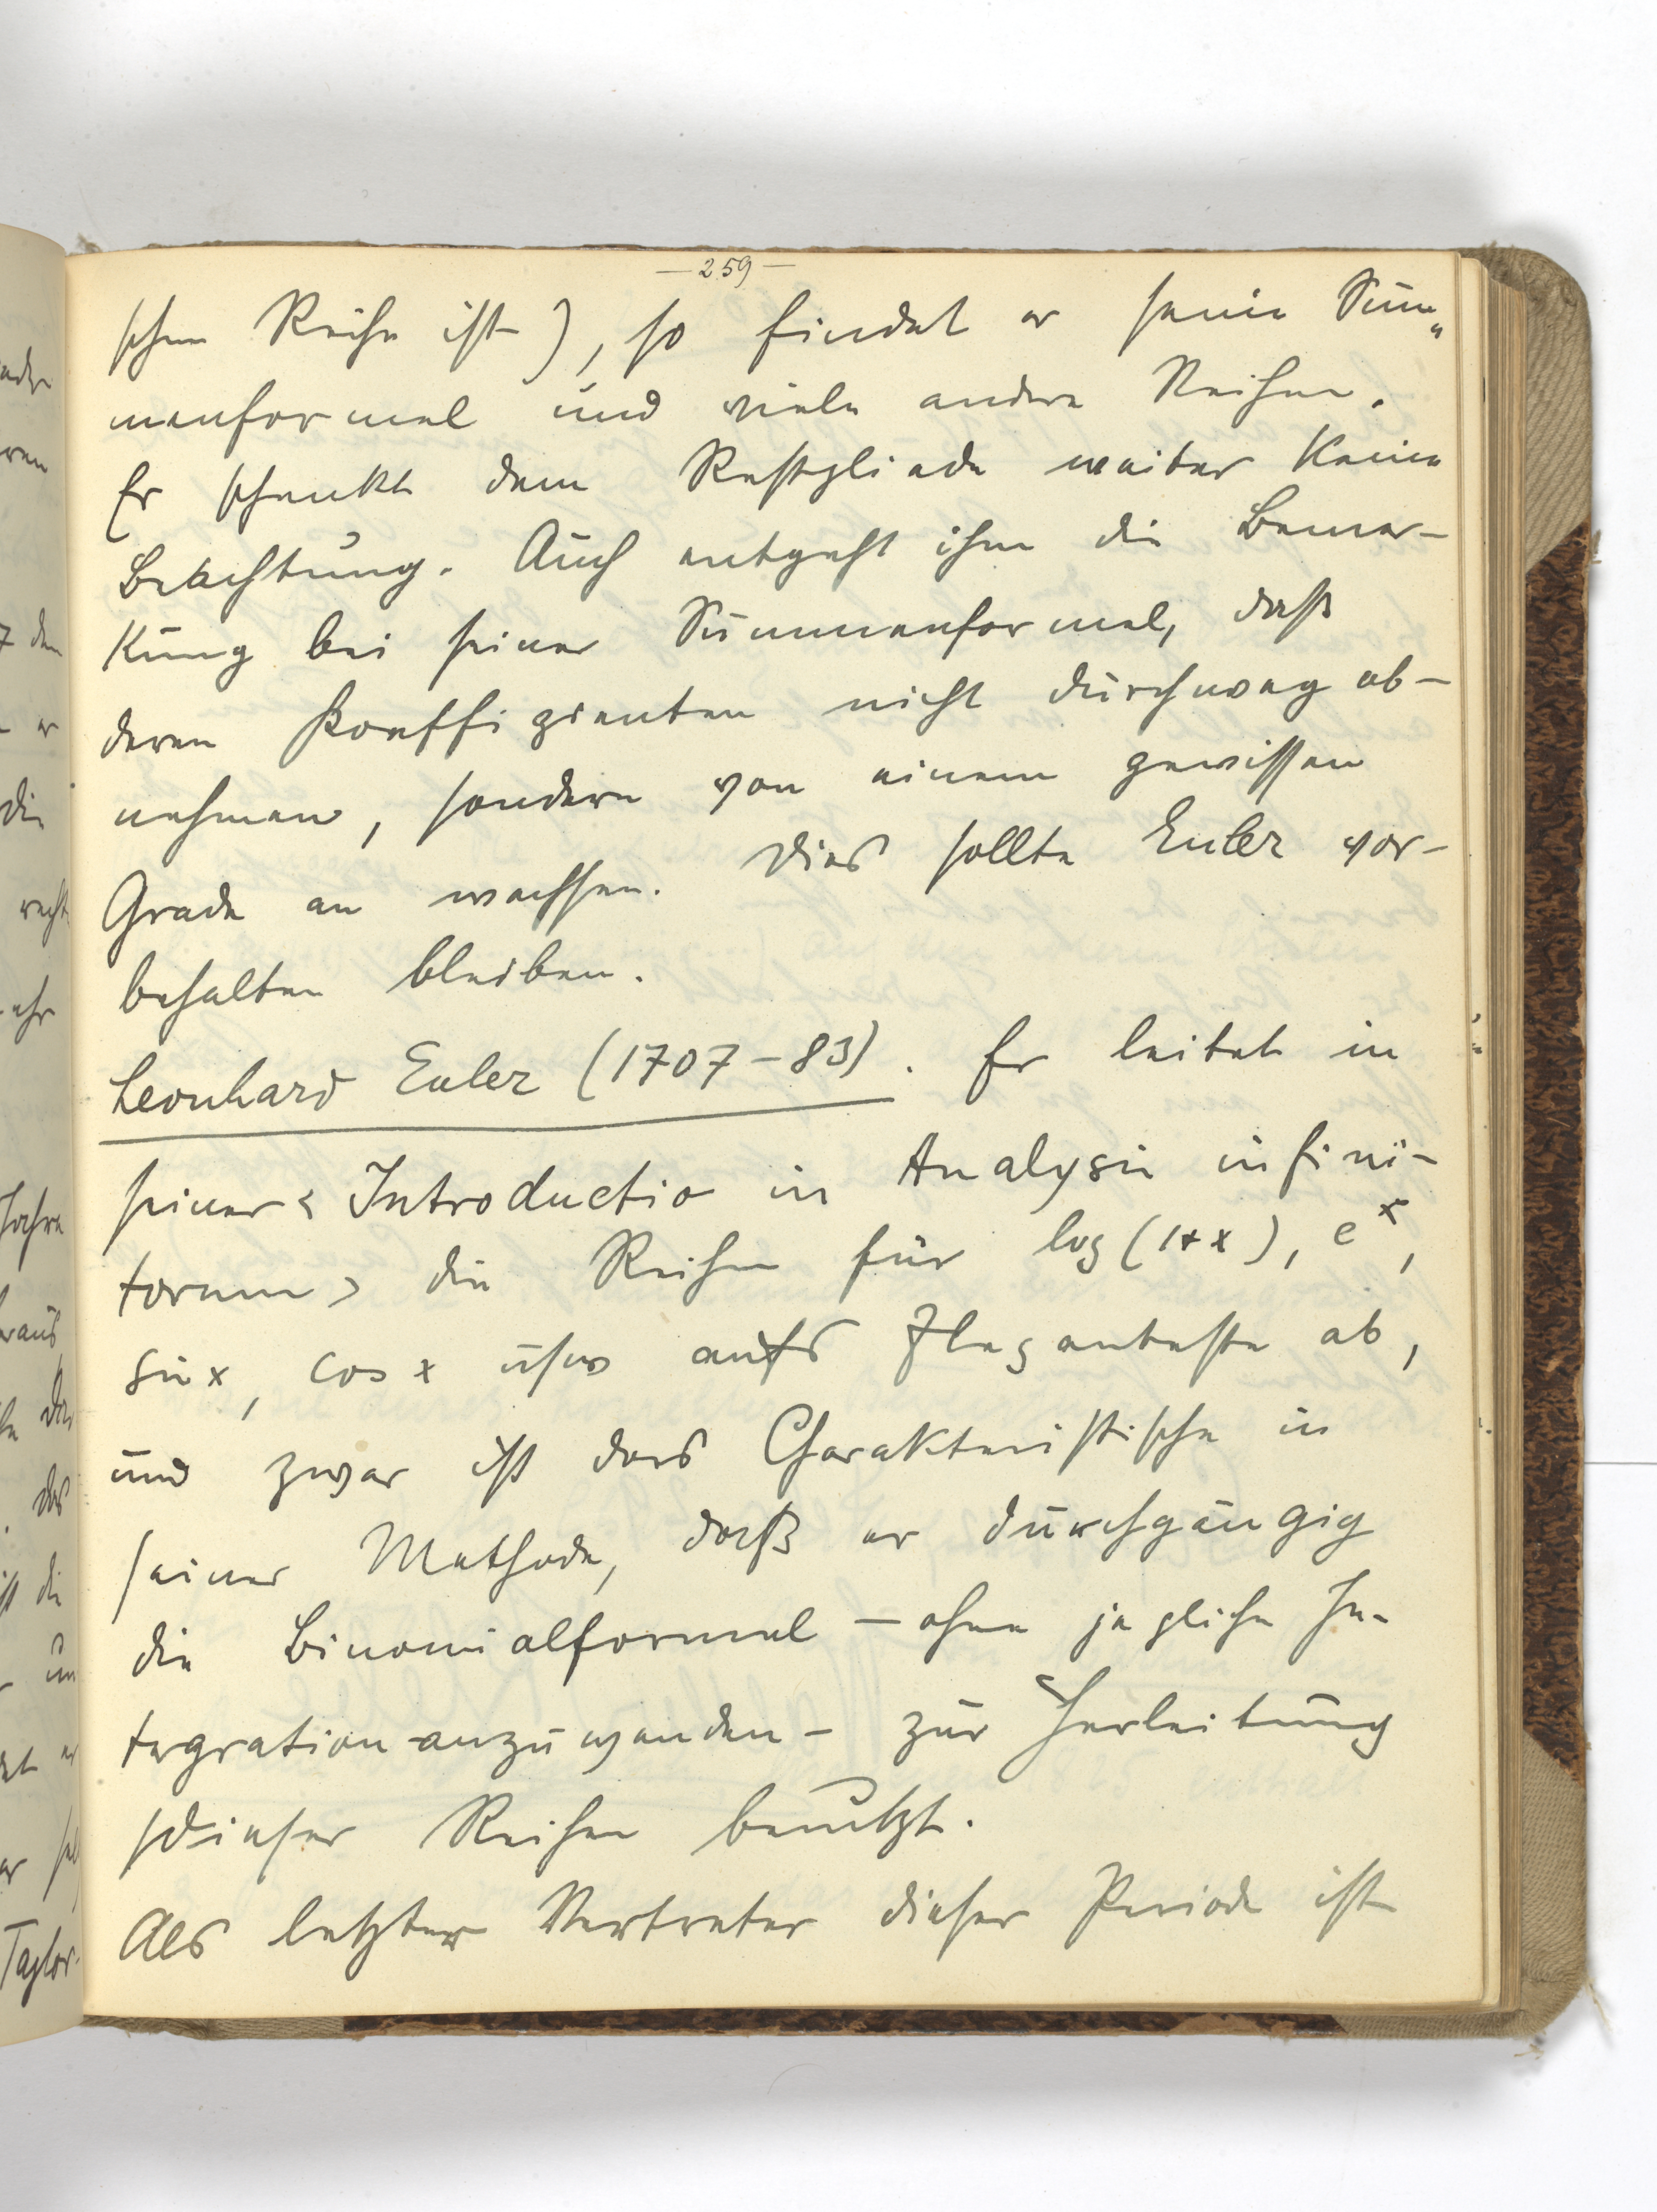 — 259 —
schen Reihe ist), so findet er seine Sum„
menformel und viele andere Reihen.
Er schenkt dem Restgliede weiter keine
Beachtung. Auch entgeht ihm die Bemer-
kung bei seiner Summenformel, daß
deren Koeffizienten nicht durchweg ab-
nehmen, sondern von einem gewissen
Grade an wachsen. Dies sollte Euler vor-
behalten bleiben.
Leonhard Euler (1707-83). Er leitet in
seiner < Introductio in Analysin infini-
torum > die Reihen für log(1+x), e^x,
sin x, cos x usw aufs Eleganteste ab,
und zwar ist das Charakteristische in
seiner Methode, daß er durchgängig
die Binomialformel – ohne jegliche In-
tegration anzuwenden – zur Herleitung
dieser Reihen benutzt.
Als letzter Vertreter dieser Periode ist